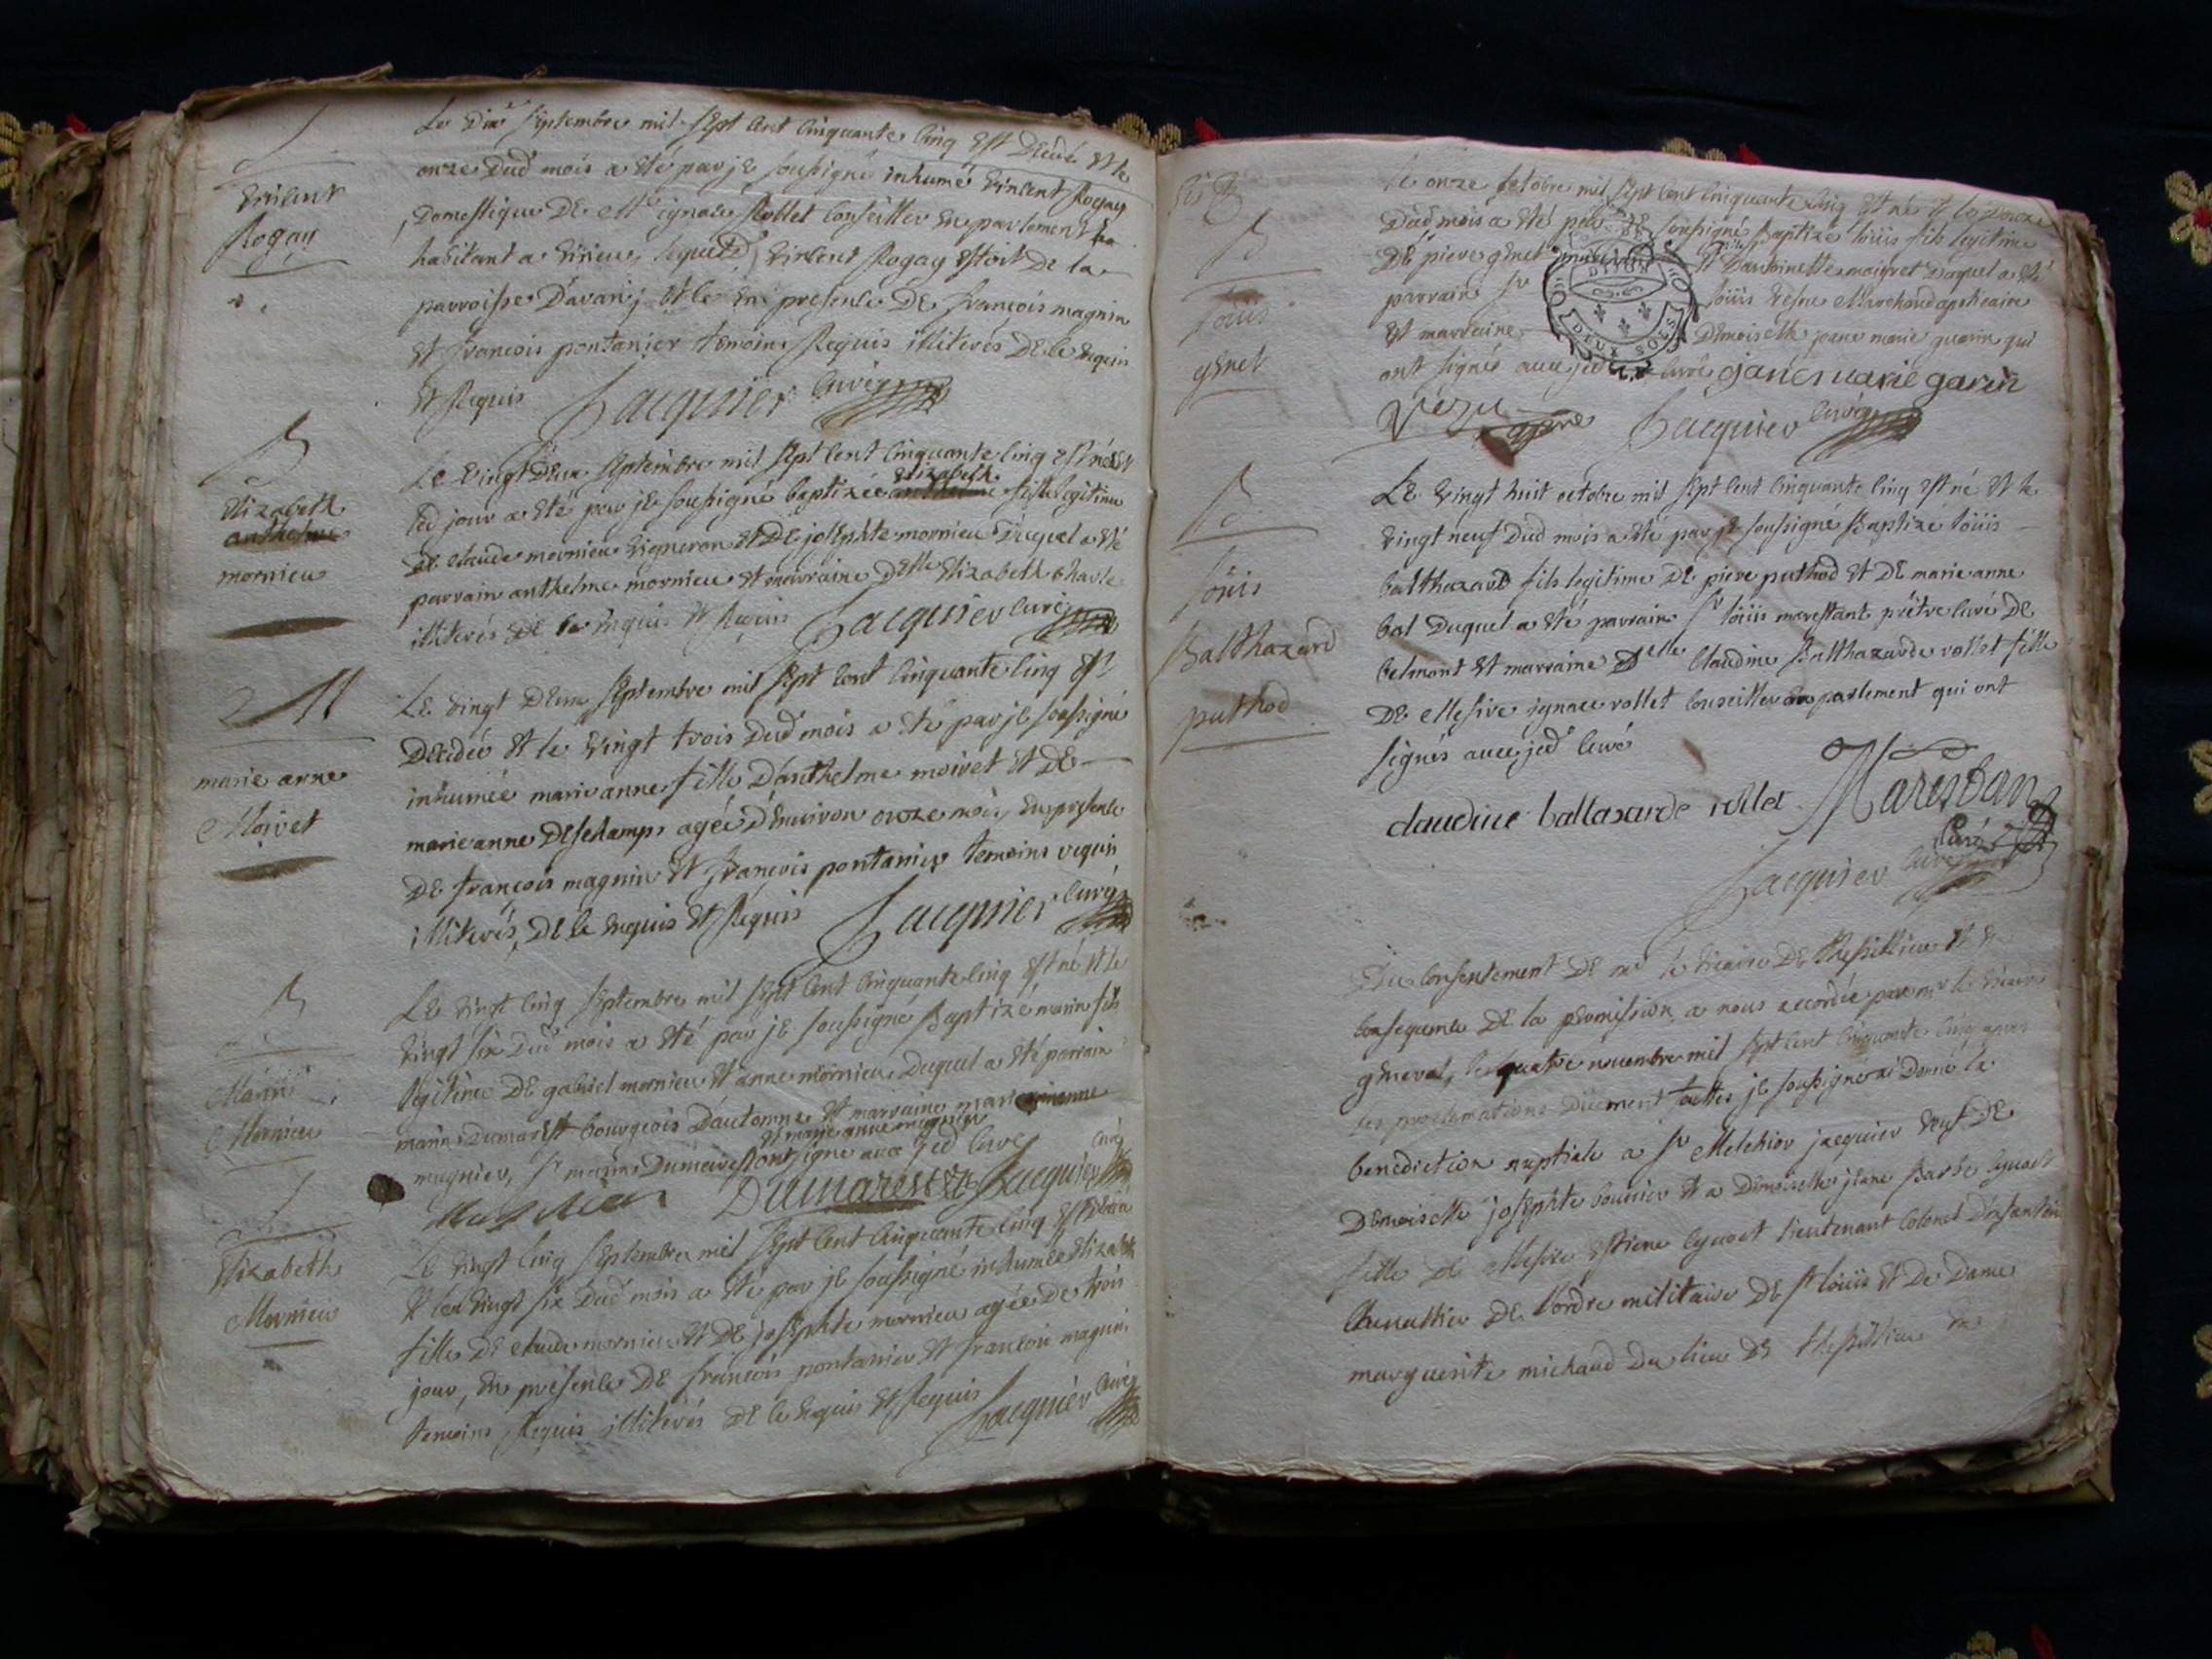 Vincent
Rogay
Le dix septembre mil sept cent cinquante cinq est decedé et le
onze dud mois a eté par je soussigné inhumé vincent Rogay
domestique de ignace Rollet conseiller en parlement
habitant a virieu, lequel d vincent Rogay estoit de la
parroisse d'avari et ce en presence de francois magnin
et francois pontanier temoins Requis illiterés de ce enquis
et Requis Jacquier curé
Elizabeth
anthelme
mornieu
Le vingt deux septembre mil sept cent cinquante cinq est née et
led jour a eté par je soussigné baptizée Elizabeth fille legitime
de claude mornieu vigneron et de josephte mornieu duquel a eté
parrain anthelme mornieu et marraine Delle Elizabeth charle
illiterés de ce enquis et Requis Jacquier curé
marie anne
Moivet
Le vingt deux septembre mil sept cent cinquante cinq est
decedée et le vingt trois dud mois a eté par je soussigné
inhumée marie anne fille d'anthelme moivet et de
marie anne deschamps agée d'environ onze mois, en presence
de francois magnin et françois pontanier temoins requis
illiterés, de ce enquis et Requis Jacquier curé
Marin
Mornieu
Le vingt cinq septembre mil sept cent cinquante cinq est né et le
vingt six dud mois a eté par je soussigné Baptizé marin fils
legitime de gabriel mornieu et anne mornieu duquel a eté parrain
marin dumarest bourgeois et marraine marie
et marie anne mugnier
mugnier, sr marin dumarest ont signé avec jed curé
Dumarest Jacquier curé
Elizabeth
Mornieu
Le vingt cinq septembre mil sept cent cinquante cinq est
et le vingt six dud mois a eté par je soussigné inhumée Elizabeth
fille de claude mornieu et de josephte mornieu agée de trois
jour, en presence de francois pontanier et francois magnin
temoins Requis illiterés de ce enquis et Requis Jacquier curé
Loüis
genet
le onze octobre mil sept cent cinquante cinq est né et le douze
dud mois a eté par je soussigné Baptizé loüis fils legitime
de piere genet et d'antoinette duquel a eté
parrain sr loüis Marchand apoticaire
et marraine demoiselle jeane marie guarin qui
ont signés avec jed curé jane marie garin
Jacquier curé
DIJON
DEUX SOLS
Loüis
Balthazard
puthod
Le vingt huit octobre mil sept cent cinquante cinq est né et le
vingt neuf dud mois a eté par je soussigné Baptizé loüis
balthazard fils legitime de piere puthod et de marie anne
bal duquel a eté parrain sr loüis marestant prêtre curé de
belmont et marraine Delle claudine Balthazarde rollet fille
de Messire ignace rollet conseiller au parlement qui ont
signés avec jed curé
claudine baltasarde rollet Marestan
curé
Jacquier curé
Du consentement de mr le vicaire de et en
consequence de la permission a nous accordée par mr le vicaire
general, le quatre novembre mil sept cent cinquante cinq
les proclamations düement faittes je soussigné ai donné la
benediction nuptiale a sr Melchior jacquier veuf de
demoiselle josephte et a demoiselle jeane Barbe
fille de Messire Estiene lieutenant colonel d'infanterie
chevallier de l'ordre militaire de st loüis et de dame
marguerite michaud du lieu de